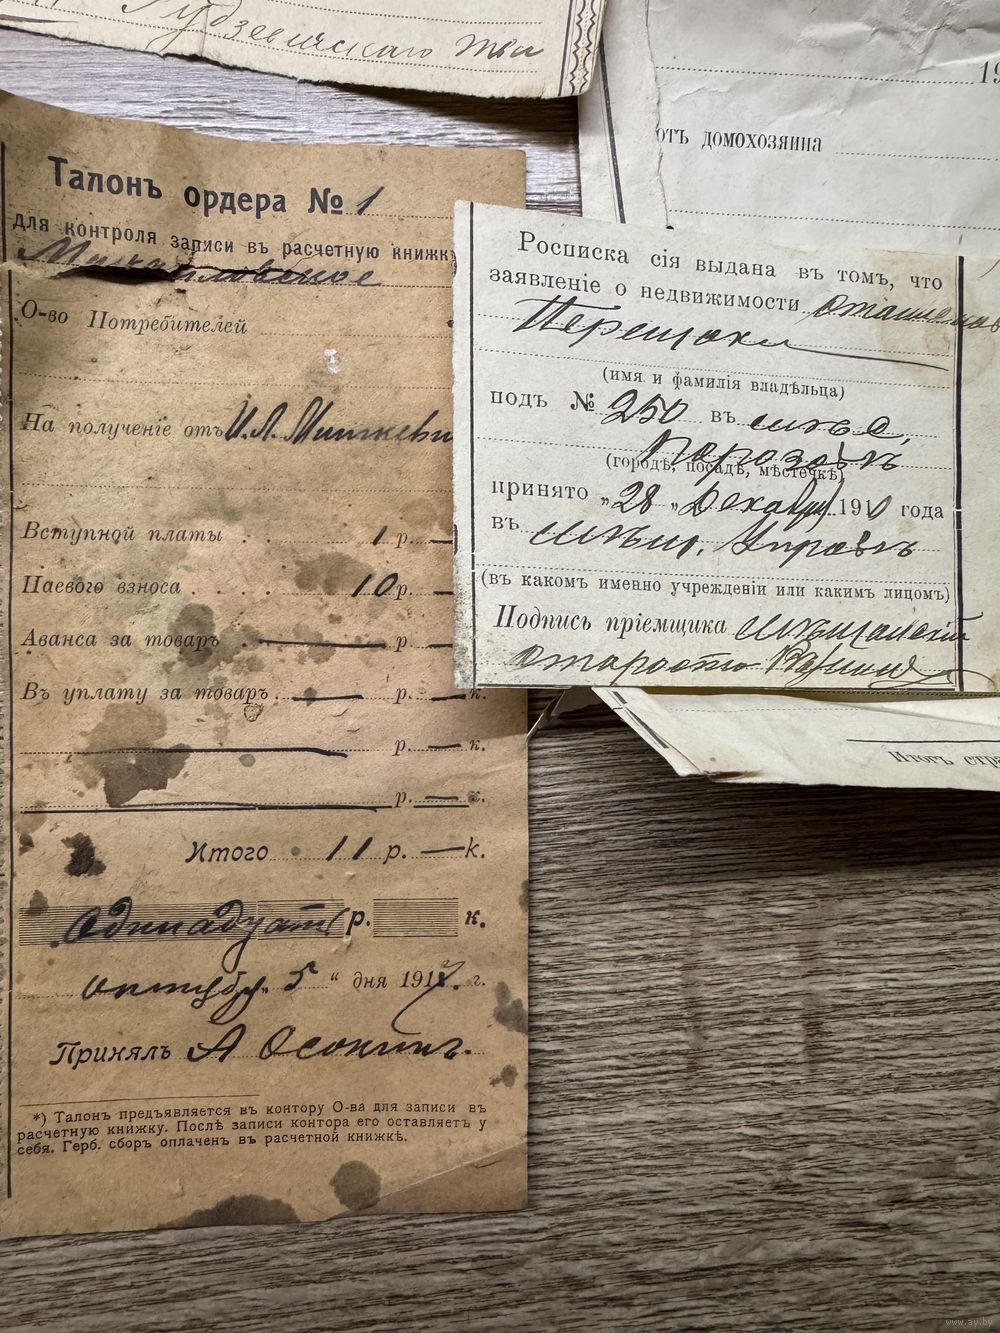 Гудзевичскаго
19
отъ домохозяина
Талонъ ордера № 1
для контроля записи въ расчетную книжку
О-во Потребителей
На полученіе отъ И. Л.
Вступной платы 1 р. —
Паевого взноса 10 р. —
Аванса за товаръ — р. —
Въ уплату за товаръ — р. — к.
— р. — к.
— р. — к.
Итого 11 р. — к.
Одинадцать р. к.
октября „ 5 “ дня 1917. г.
Принялъ А Осокинъ.
*) Талонъ предъявляется въ контору О-ва для записи въ
расчетную книжку. Послѣ записи контора его оставляетъ у
себя. Герб. сборъ оплаченъ въ расчетной книжкѣ.
Росписка сія выдана въ томъ, что
заявленіе о недвижимости
(имя и фамилія владѣльца)
подъ № 250 въ
Порозовѣ
(городѣ, посадѣ, мѣстечкѣ)
принято „ 28 „ Декабря 1910 года
въ Управѣ
(въ какомъ именно учрежденіи или какимъ лицомъ)
Подпись пріемщика мѣщанскій
староста
Итогъ стра
www.ay.by